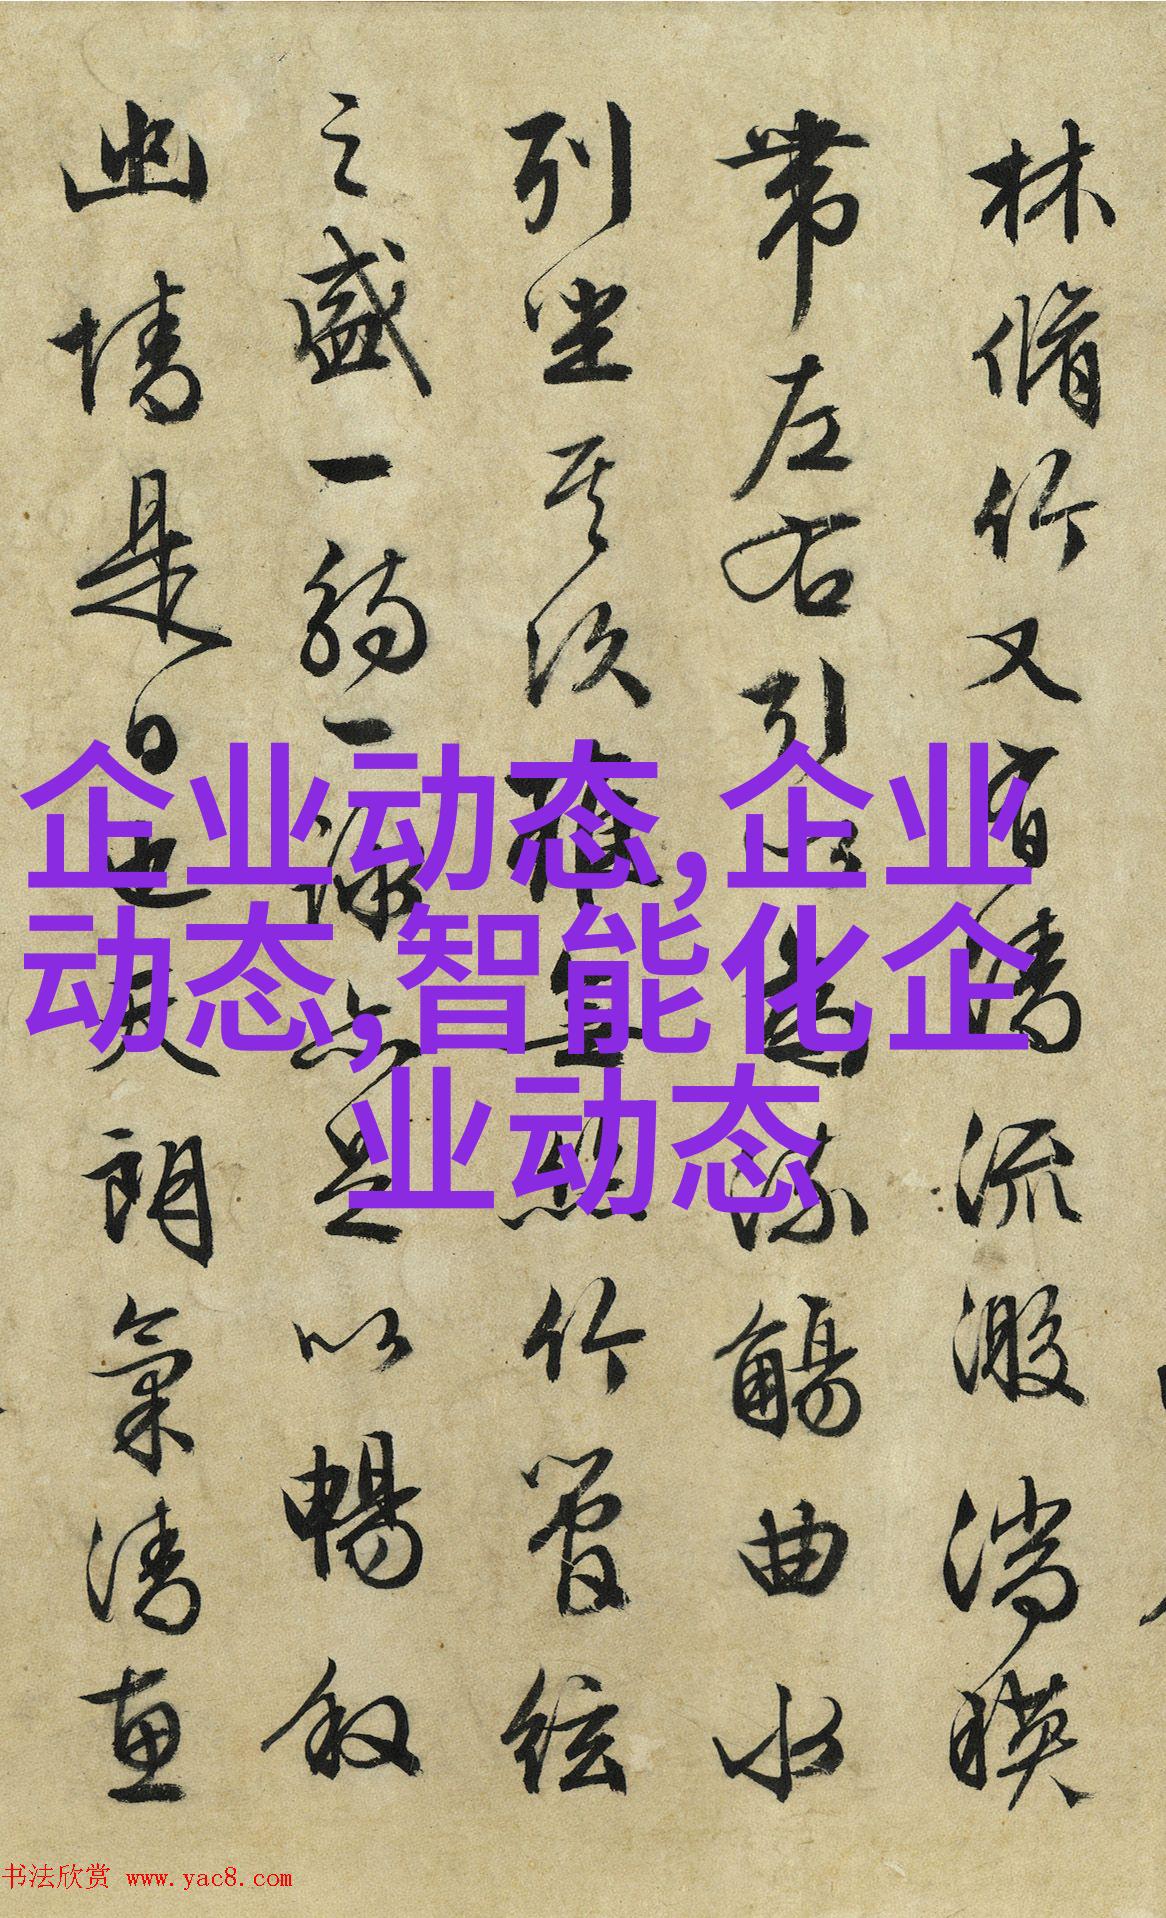 林脩竹又有清流激湍暎
帶左右引以為流觴曲水
列坐其次雖無絲竹管絃
之盛一觴一詠亦足以暢叙
幽情是日也天朗氣清惠
企业动态,企业
动态,智能化企
业动态
书法欣赏 www.yac8.com